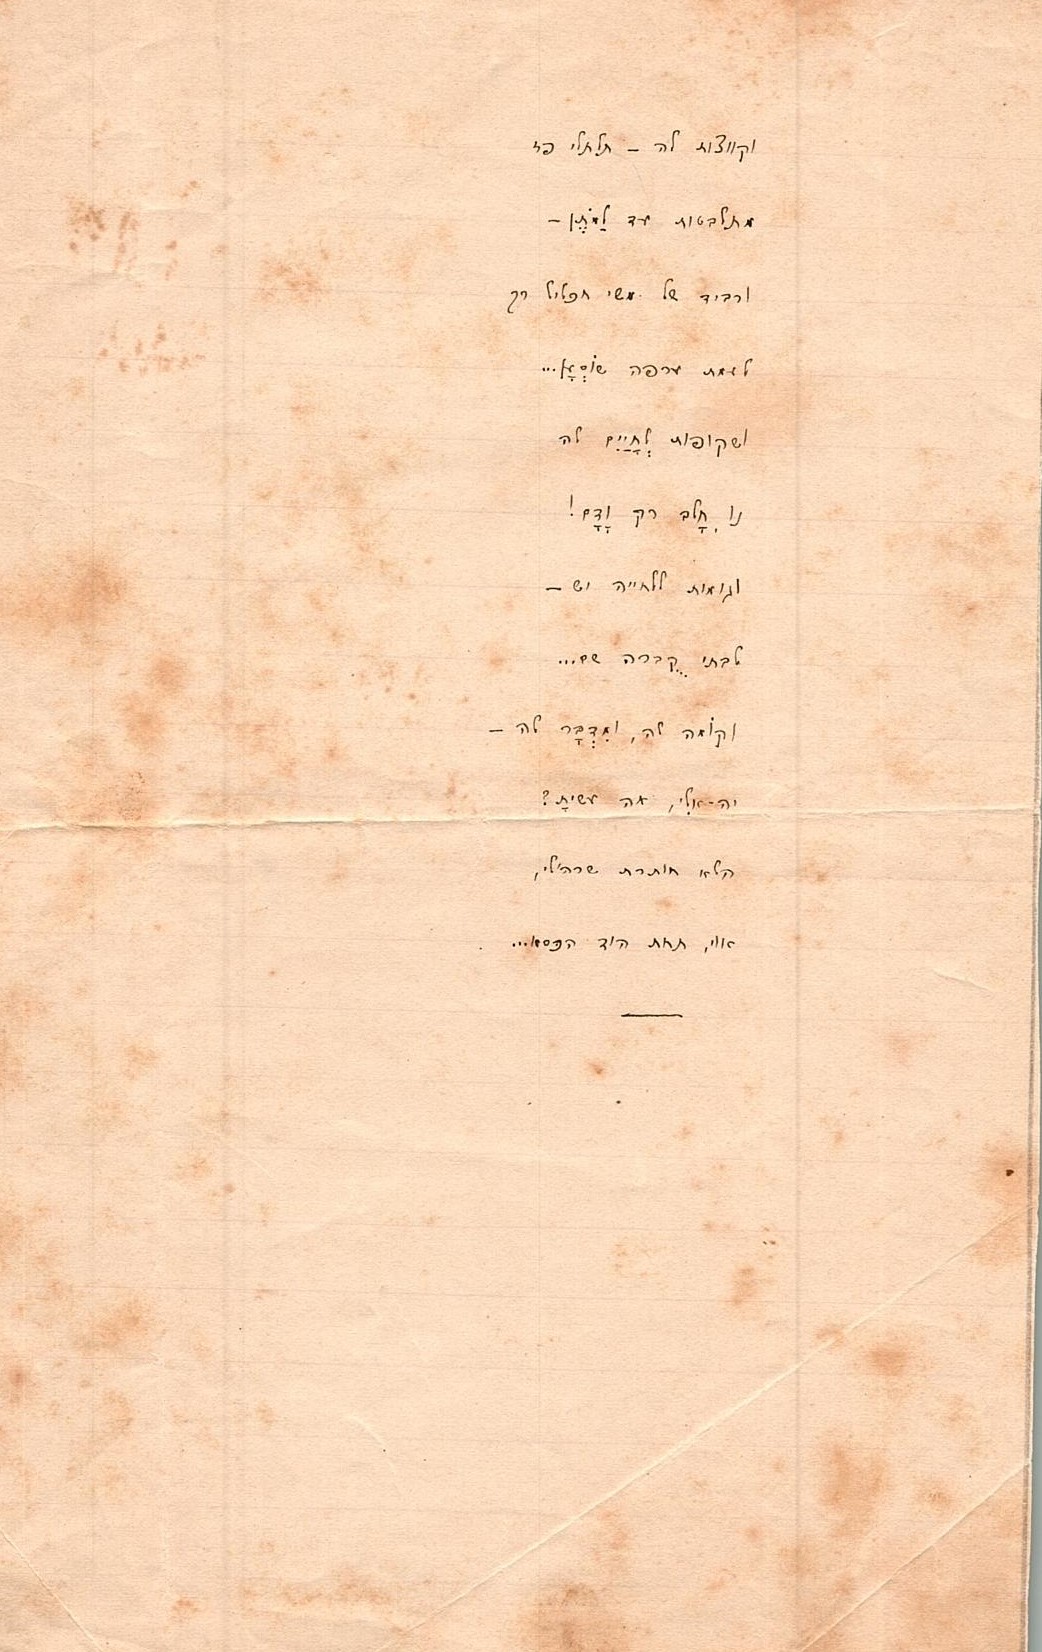 וקווצות לה – תלתלי פז
מתלבטות עד לַמֹּתֶן –
ורביד של משי חכליל רק
לעמת ערפה שׂוֹסְעָ...
ושקופות לְחָיַיִם לה
נו חָלב רק וָדָם!
וגומות ללחייה יש –
לבתי קֻברה שם...
וקוֹמה לה, ומִדְבָּר לה –
יה-אֵלִי, מה עשיתָ?
הלא חותרת שרה'לי,
אוי, תחת הוד הכסא...